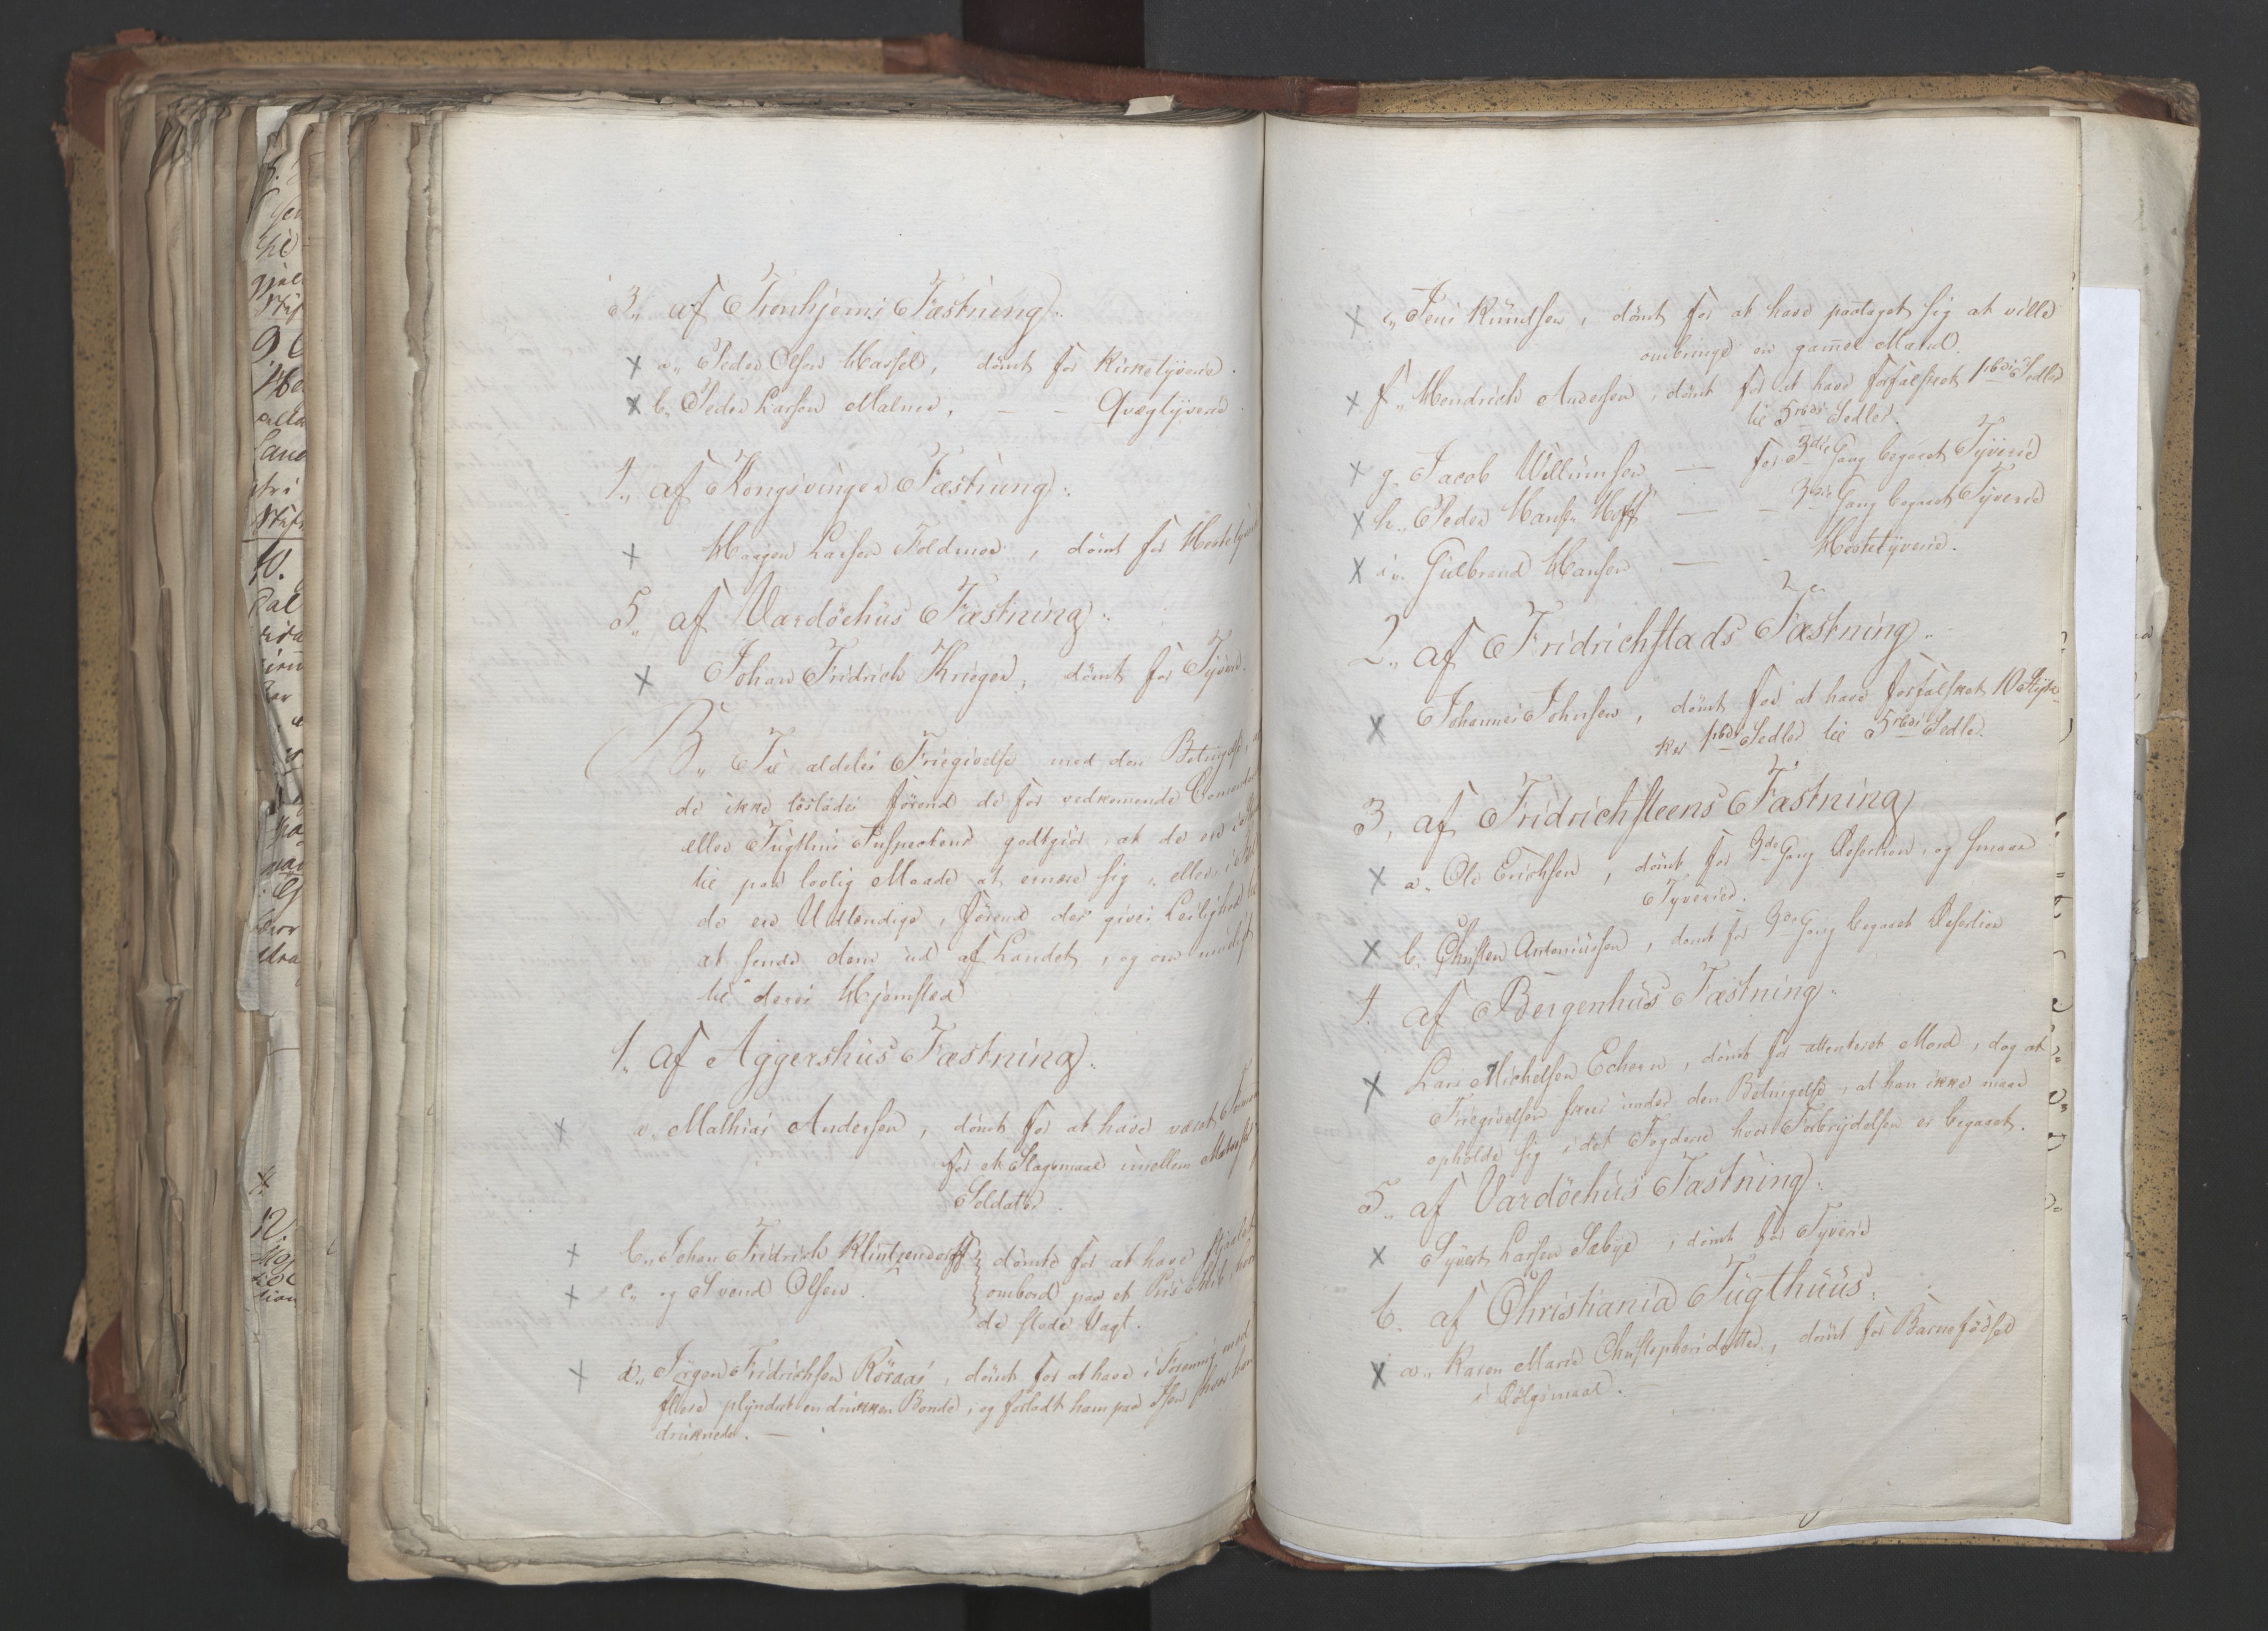 3,, af Tronhjems Fæstning:
a,, Peder Olsen Hassel, dömt for Kirketyverie.
b. Peder Larsen Malmoe, — — Qvægtyverie
4,, af Kongsvinger Fæstning:
Haagen Larsen Toldmoe, dömt for Hestetyverie
5,, af Vardöehüs Fæstning:
Johan Fridrich Krieger, dömt for Tyverie.
B,, Til aldeles Friegivelse med den Betingelse,
de ikke löslades förend de for vedkommende
eller Tugthus Inspecteur godtgiör, at de ere i
til paa lovlig Maade at ernære sig, eller, i
de ere Udlændige, förend der gives Leilighed
at sende dem ud af Landet, og om muligt
til deres Hjemsted
1. af Aggershüs Fæstning:
a. Mathias Andersen, dömt for at have været
for et Slagsmaal imellem
Soldater.
b,, Johan Fridrich Klintzendorff } dömte for at have stjaalet
c,, og Svend Olsen. } ombord paa et Priis Skib, hvor
de stode Vagt.
d,, Jörgen Fridrichsen Röraas, dömt for at have i Forening med
flere plyndret en drukken Bonde, og forladt ham paa Isen hvor han
druknede. —
e,, Jens Knudsen, dömt for at have paataget sig at ville
ombringe en gammel Mand.
f,, Hendrich Andersen, dömt for at have forfalsket 1 rbds Sedler
til 5 rbds Sedler.
g. Jacob Willumsen — for 3die Gang begaaet Tyverie
h,, Peder Hansen Hoff — — 3die Gang begaaet Tyverie
i,, Gulbrand Hansen — - Hestetyverie.
2,, af Fridrichstads Fæstning:
Johannes Johnsen, dömt for at have forfalsket 10 Styk-
ker 1 rbds Sedler til 5 rbds Sedler.
3, af Fridrichsteens Fæstning
a,, Ole Erichsen, dömt for 3de Gang Desertion, og smaae
Tyverier.
b. Christen Antoniussen, dömt for 3die Gang begaaet Desertion
4. af Bergenhüs Fæstning:
Lars Michelsen Echern, dömt for attenteret Mord, dog at
Friegivelsen skeer under den Betingelse, at han ikke maae
opholde sig i det Fogderie hvor Forbrydelsen er begaaet.
5,, af Vardöehüs Fæstning:
Syvert Larsen Sæbye, dömt for Tyverie
6. af Christiania Tugthuus:
a,, Karen Marie Christophersdatter, dömt for Barnefödsel
i Dölgsmaal.